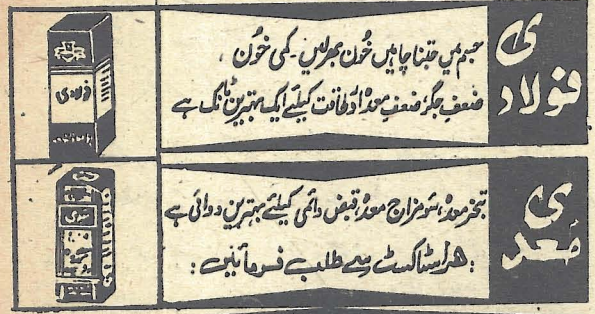 فولادی
جسم میں جتنا چاہیں خُون بھرلیں۔ کمی خُون،
ضعف جگر، ضعفِ معدہ اور طاقت کیلئے ایک بہترین ٹانک ہے
فولادی
مَعدی
تبخیر معدہ، سُو مزاج معدہ، قبض دائمی کیلئے بہترین دوائی ہے
:ھراسٹاکسٹ سے طلب فسرمائیں: